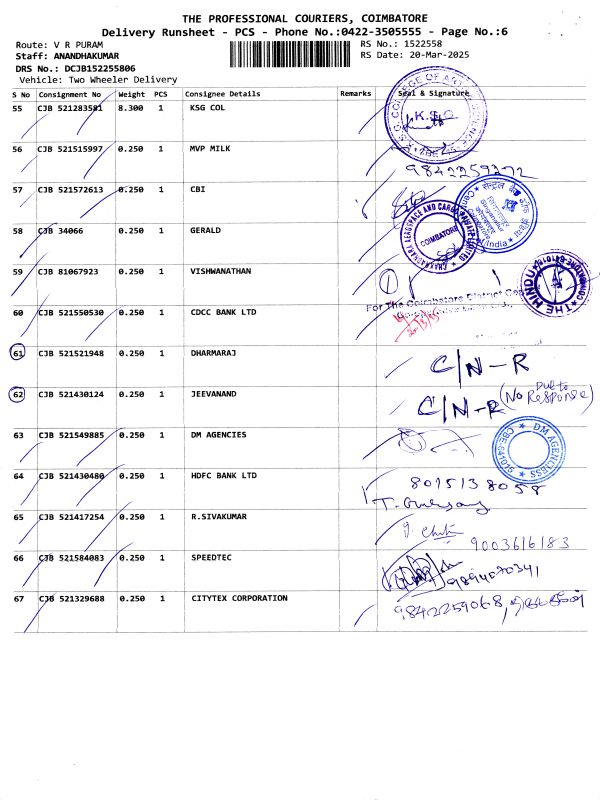 THE PROFESSIONAL COURIERS, COIMBATORE
Delivery Runsheet - PCS - Phone No.:0422-3505555 - Page No.:6
Route: V R PURAM RS No.: 1522558
Staff: ANANDHAKUMAR RS Date: 20-Mar-2025
DRS No.: DCJB152255806
Vehicle: Two Wheeler Delivery
S No Consignment No Weight PCS Consignee Details Remarks Seal & Signature
55 CJB 521283581 8.300 1 KSG COL
K.S.G
56 CJB 521515997 0.250 1 MVP MILK
9842259272
57 CJB 521572613 0.250 1 CBI
58 CJB 34066 0.250 1 GERALD
COIMBATORE
59 CJB 81067923 0.250 1 VISHWANATHAN
THE HINDU
For The Coimbatore District
60 CJB 521550530 0.250 1 CDCC BANK LTD
61 CJB 521521948 0.250 1 DHARMARAJ C/N-R
62 CJB 521430124 0.250 1 JEEVANAND C/N-R (Due to No Response)
63 CJB 521549885 0.250 1 DM AGENCIES
DM AGENCIESS
64 CJB 521430480 0.250 1 HDFC BANK LTD 8015138058
65 CJB 521417254 0.250 1 R.SIVAKUMAR
9003616183
66 CJB 521584083 0.250 1 SPEEDTEC 9894070341
67 CJB 521329688 0.250 1 CITYTEX CORPORATION 9842259068,